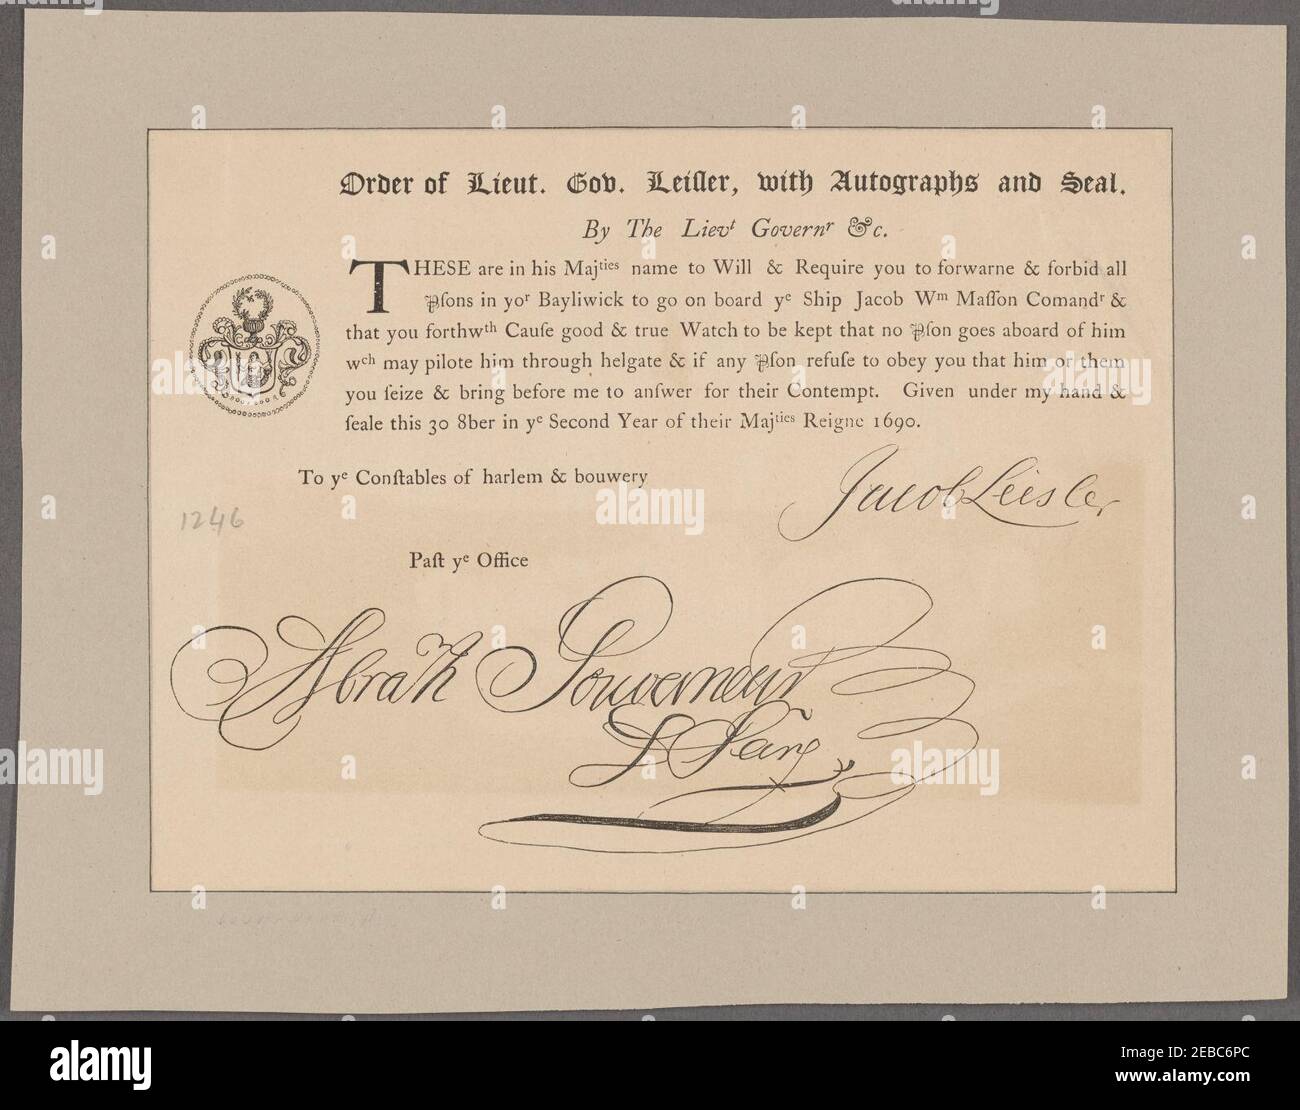 Order of Lieut. Gov. Leiſler, with Autographs and Seal.
By The Lievᵗ Governʳ &c.
THESE are in his Majᵗⁱᵉˢ name to Will & Require you to forwarne & forbid all
ꝑſons in yoʳ Bayliwick to go on board yᵉ Ship Jacob Wᵐ Maſſon Comandʳ &
that you forthwᵗʰ Cauſe good & true Watch to be kept that no ꝑſon goes aboard of him
wᶜʰ may pilote him through helgate & if any ꝑſon refuſe to obey you that him or them
you ſeize & bring before me to anſwer for their Contempt. Given under my hand &
ſeale this 30 8ber in yᵉ Second Year of their Majᵗⁱᵉˢ Reigne 1690.
To yᵉ Conſtables of harlem & bouwery
Jacob Leisler
1246
Paſt yᵉ Office
Abrah Gouverneur
alamy
alamy
Image ID: 2EBC6PC
www.alamy.com